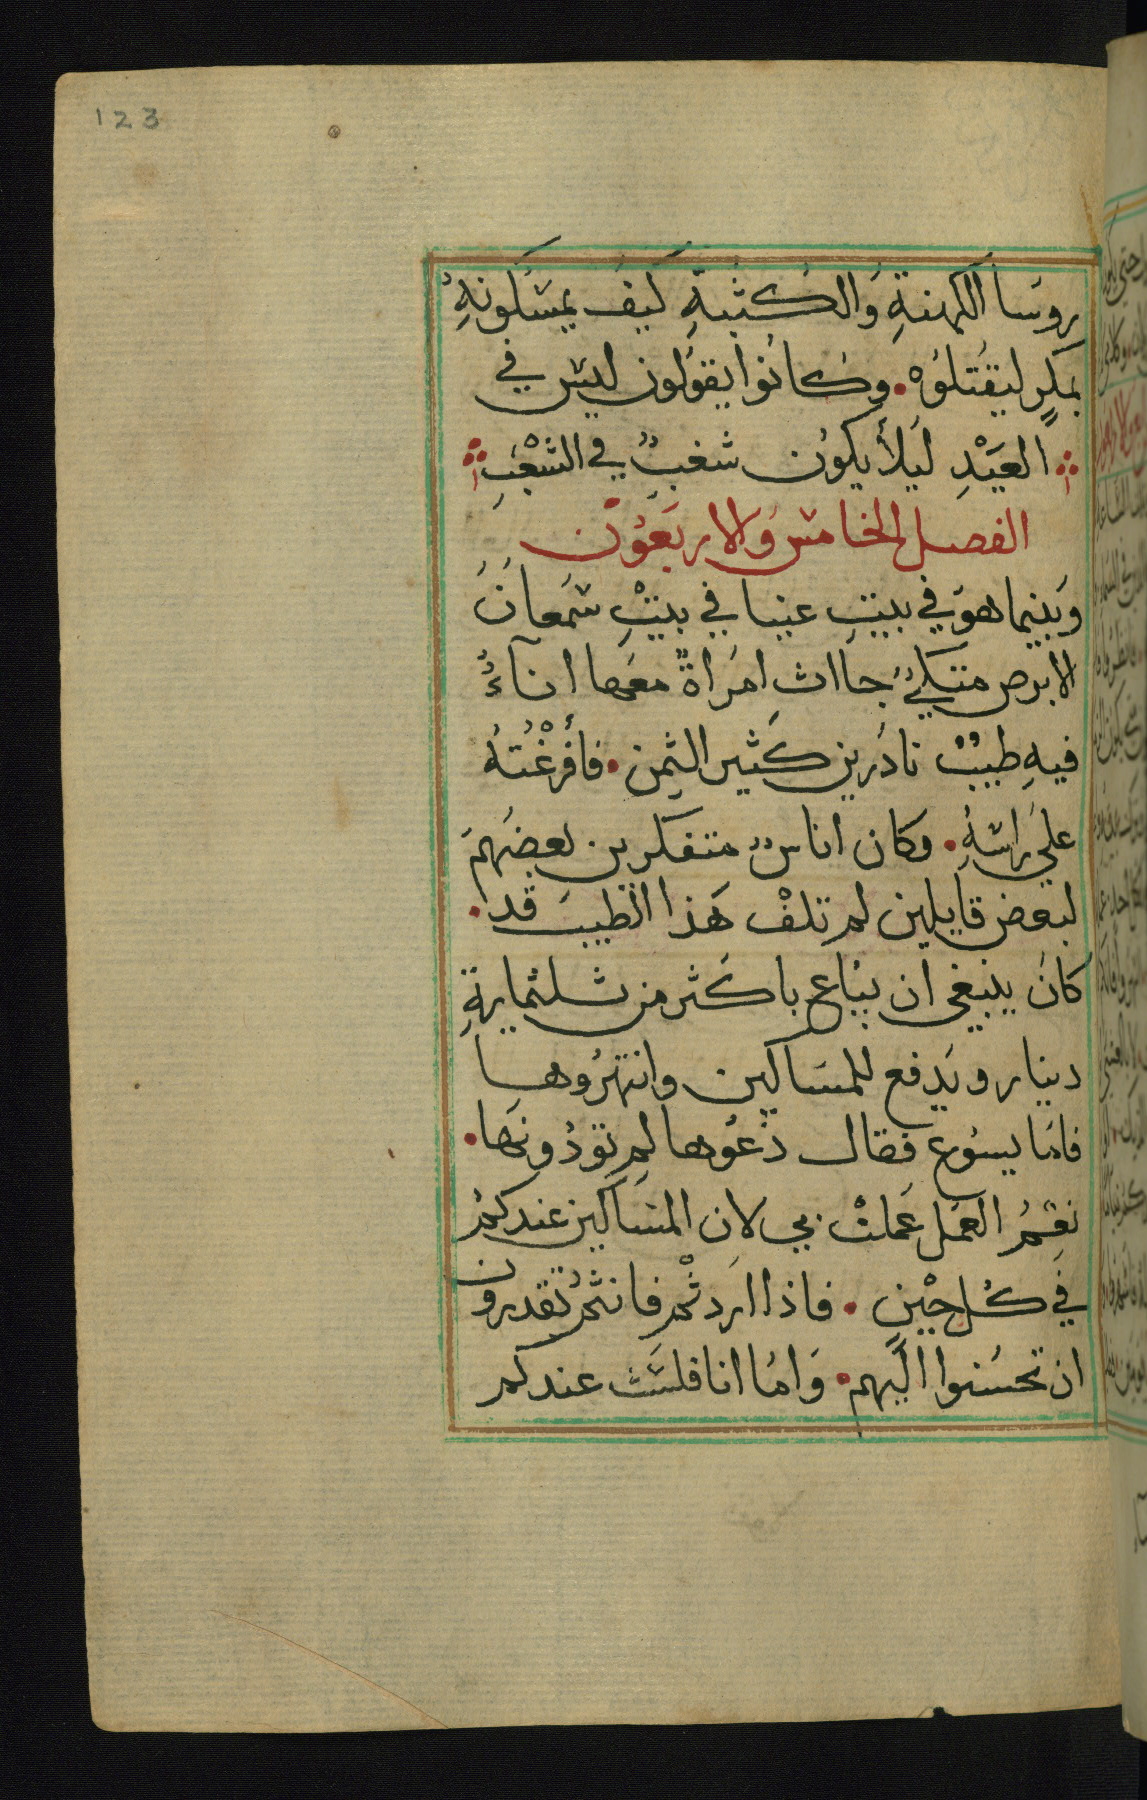 123
روسا الكهنةِ وَالكتبةِ كيف يمسَكونهِ
بمكرٍ ليقتلوُه. وكانوا يقوُلون ليس في
العيَدِ ليَلاَ يكوُن شغبٌ في الشعْبِ
الفصل الخامس وَالاربَعوُن
وَبينما هوَ في بيتِ عنيا في بيتِ سَمعانَ
الابرص متكيُ جاات امرَاةٌ معَها اناءٌ
فيهِ طيبٌ نادَرين كثير الثمن. فأفرْغتهُ
علي رَاسَهِ. وكان اناسٌ متفكرين بعضهَم
لبعض قايلين لم تلفْ هَذا الطيبَ قد.
كانَ ينبغي ان يبُاع باكثر من ثلثمايةِ
دينار وَيدفع للمسَاكين وانتهرُوها
فامَا يسوُع فقال دعوُها لمِ توذوُنهَا.
نعَمُ العمَل عمَلتْ بي لان المسَاكين عندكمُ
في كلِ حيْنٍ. فاذا ارَدتمْ فانتمُ تقدروُن
ان تحسَنوا اليَهم. وَامَا انا فلسَت عندكم